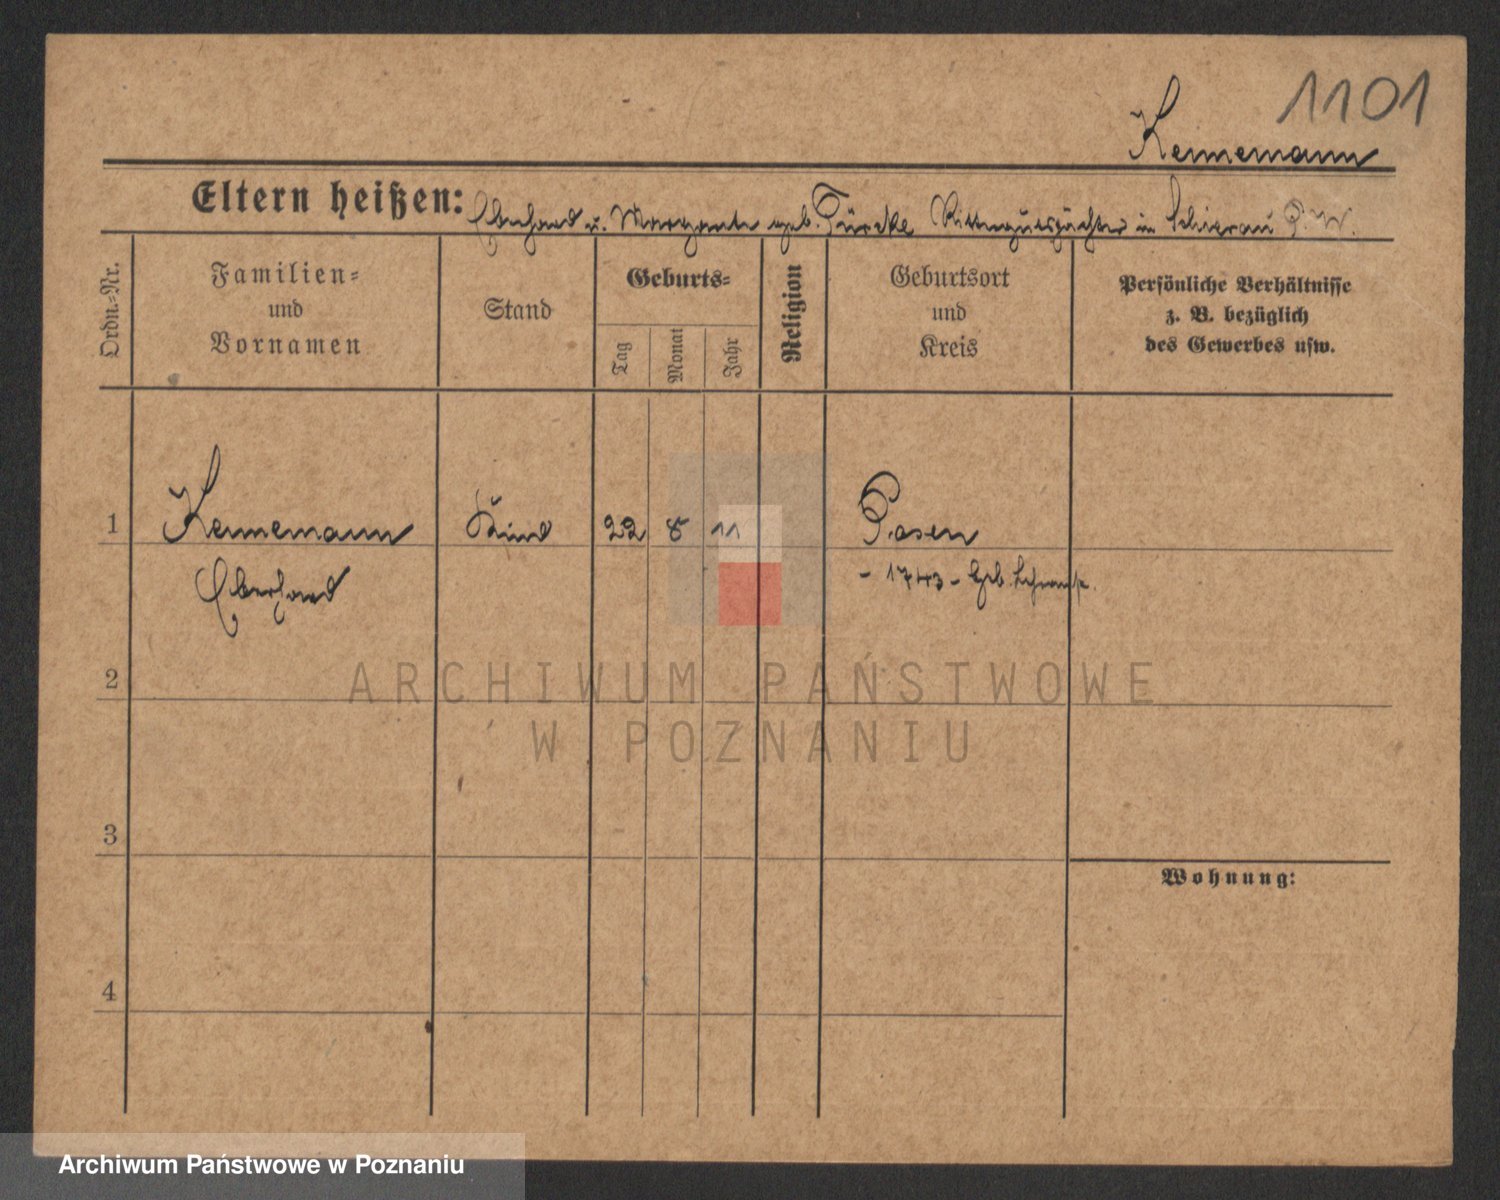 1101
Kennemann
Eltern heißen: Eberhard u. Margarete geb. Türcke Rittergutspächter in Schierau P. W.
Ordn.=Nr.
Familien=
und
Vornamen
Stand
Geburts=
Tag
Monat
Jahr
Religion
Geburtsort
und
Kreis
Persönliche Verhältnisse
z. B. bezüglich
des Gewerbes usw.
1 Kennemann Kind 22 8 11 Posen
Eberhard - 1743 - Geb.
2
ARCHIWUM PAŃSTWOWE
W POZNANIU
3
Wohnung:
4
Archiwum Państwowe w Poznaniu